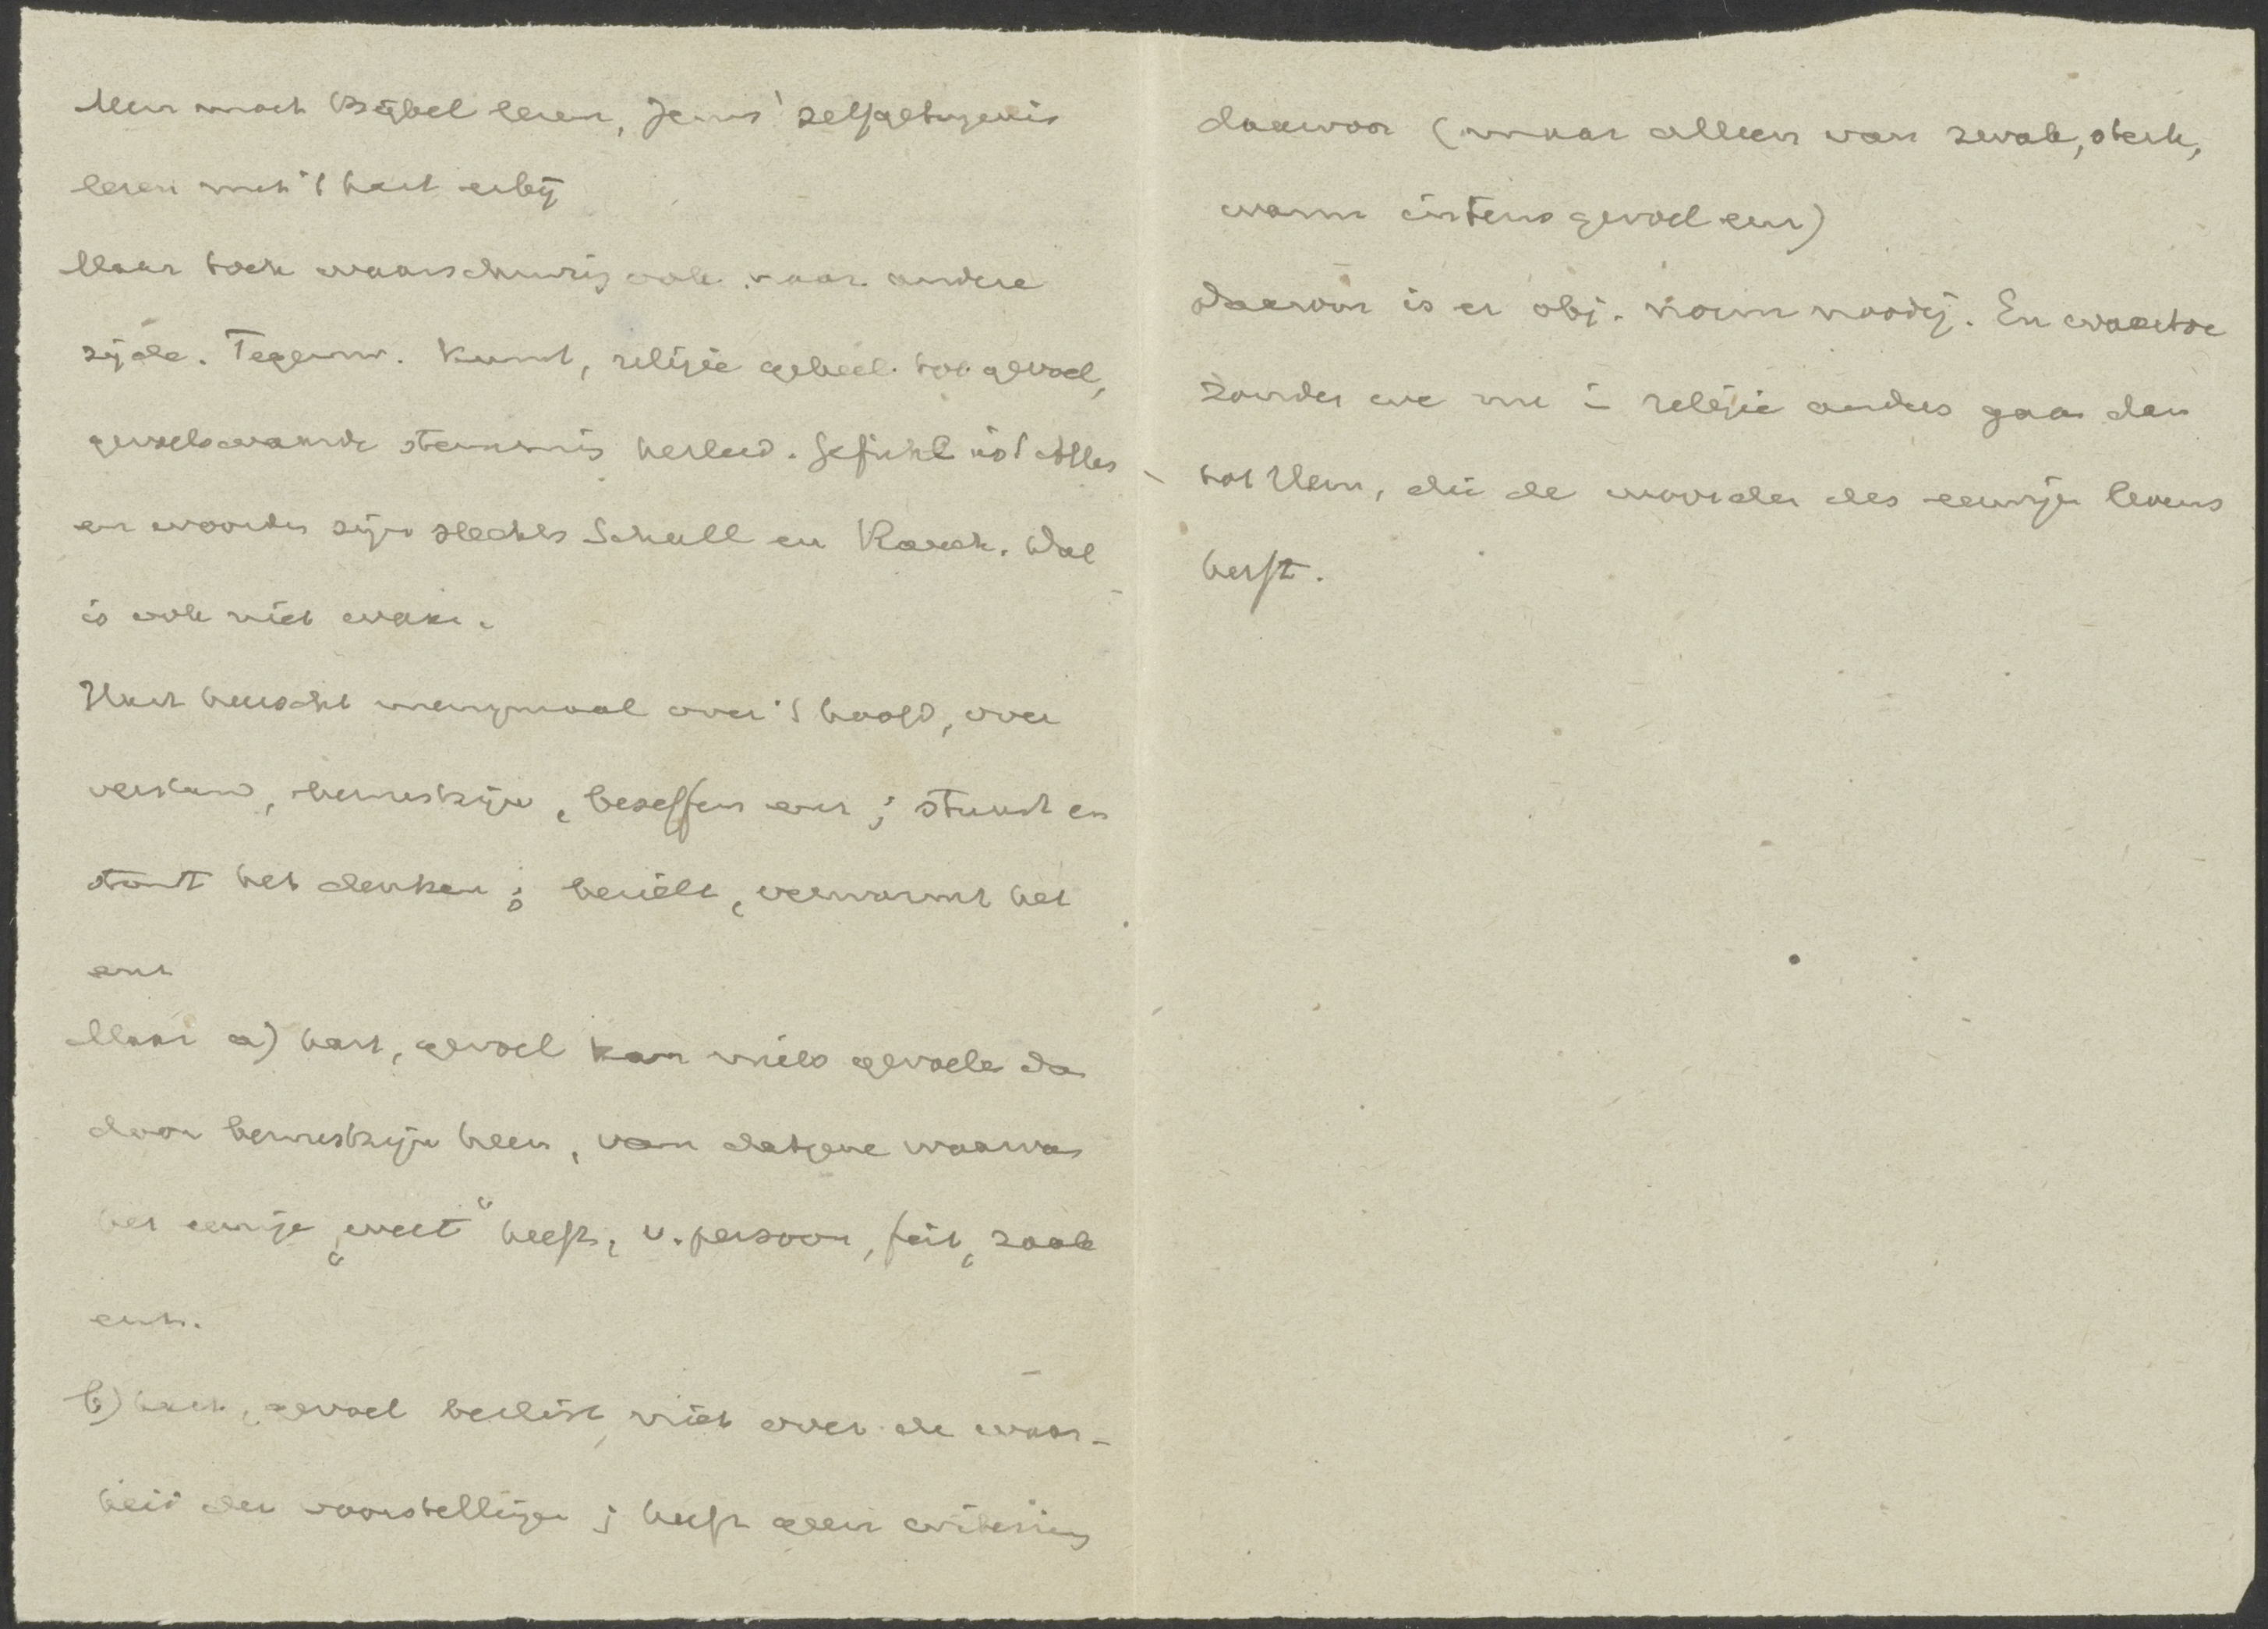 Men moet Bijbel lezen, Jezus' zelfgetuigenis
lezen met 't hart erbij
Maar toch waarschuwing ook naar andere
zijde. Tegenw. kunst, religie geheel tot gevoel,
gevoelswaarde stemming herleid. Gefühl ist Alles
en woorden zijn slechts Schall en Rauch. Dat
is ook niet waar.
Hart heerscht menigmaal over 't hoofd, over
verstand, bewustzijn, beseffen enz; stuurt en
stout het denken; bezielt, verwarmt het
enz
Maar a) hart, gevoel kan niets gevoelen dan
door bewustzijn heen, van datgene waarvan
het eenige „weet“ heeft, v. persoon, feit, zaak
enz.
b) hart, gevoel beslist niet over de waar-
heid der voorstellingen; heeft geen criterium
daarvoor (maar alleen van zwak, sterk,
warm intens gevoel enz)
Daarvoor is er obj. norm noodig. En waartoe
zouden we nu i religie anders gaan dan
tot Hem, die de woorden des eeuwigen levens
heeft.